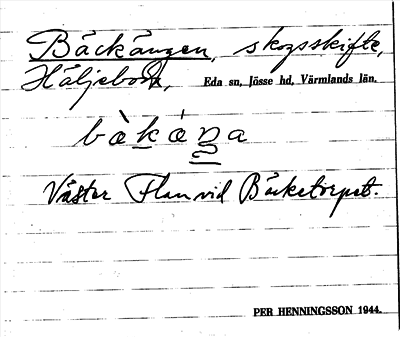 Bäckängen, skogsskifte,
Häljeboda, Eda sn, Jösse hd, Värmlands län.
bàkáŋa
Väster Flan vid Bäcketorpet.
PER HENNINGSSON 1944.